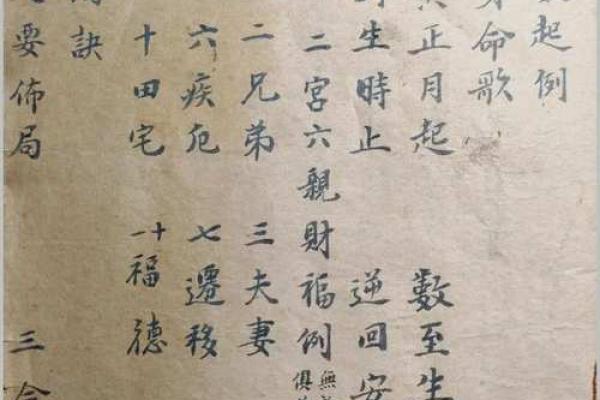 起例
命歌
正月起 數至生
生時止 逆回安
二宮六親財福例 無 俱
二兄弟 三夫妻
六疾厄 七遷移
十田宅 十一福德
訣
要佈局 三合